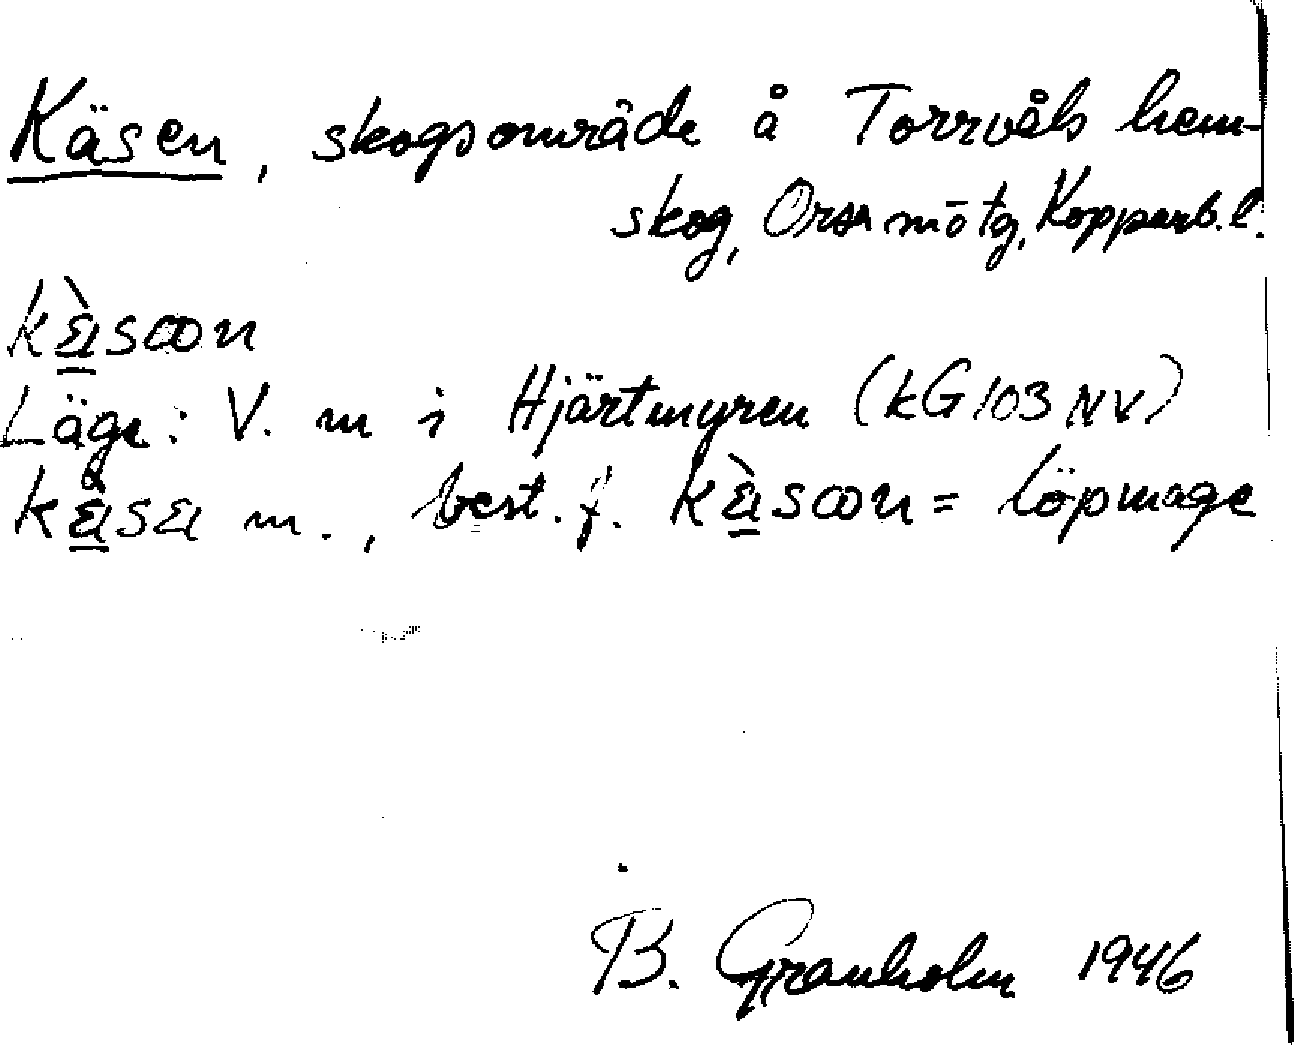 Käsen, skogsområde å Torrvåls hem-
skog, Orsa mötg, Kopparb. l.
kæ̀sɷn
Läge: V. m i Hjärtmyren (kG 103 NV)
kæ̀sæ m., best. f. kæ̀sɷn = löpmage
B. Granholm 1946